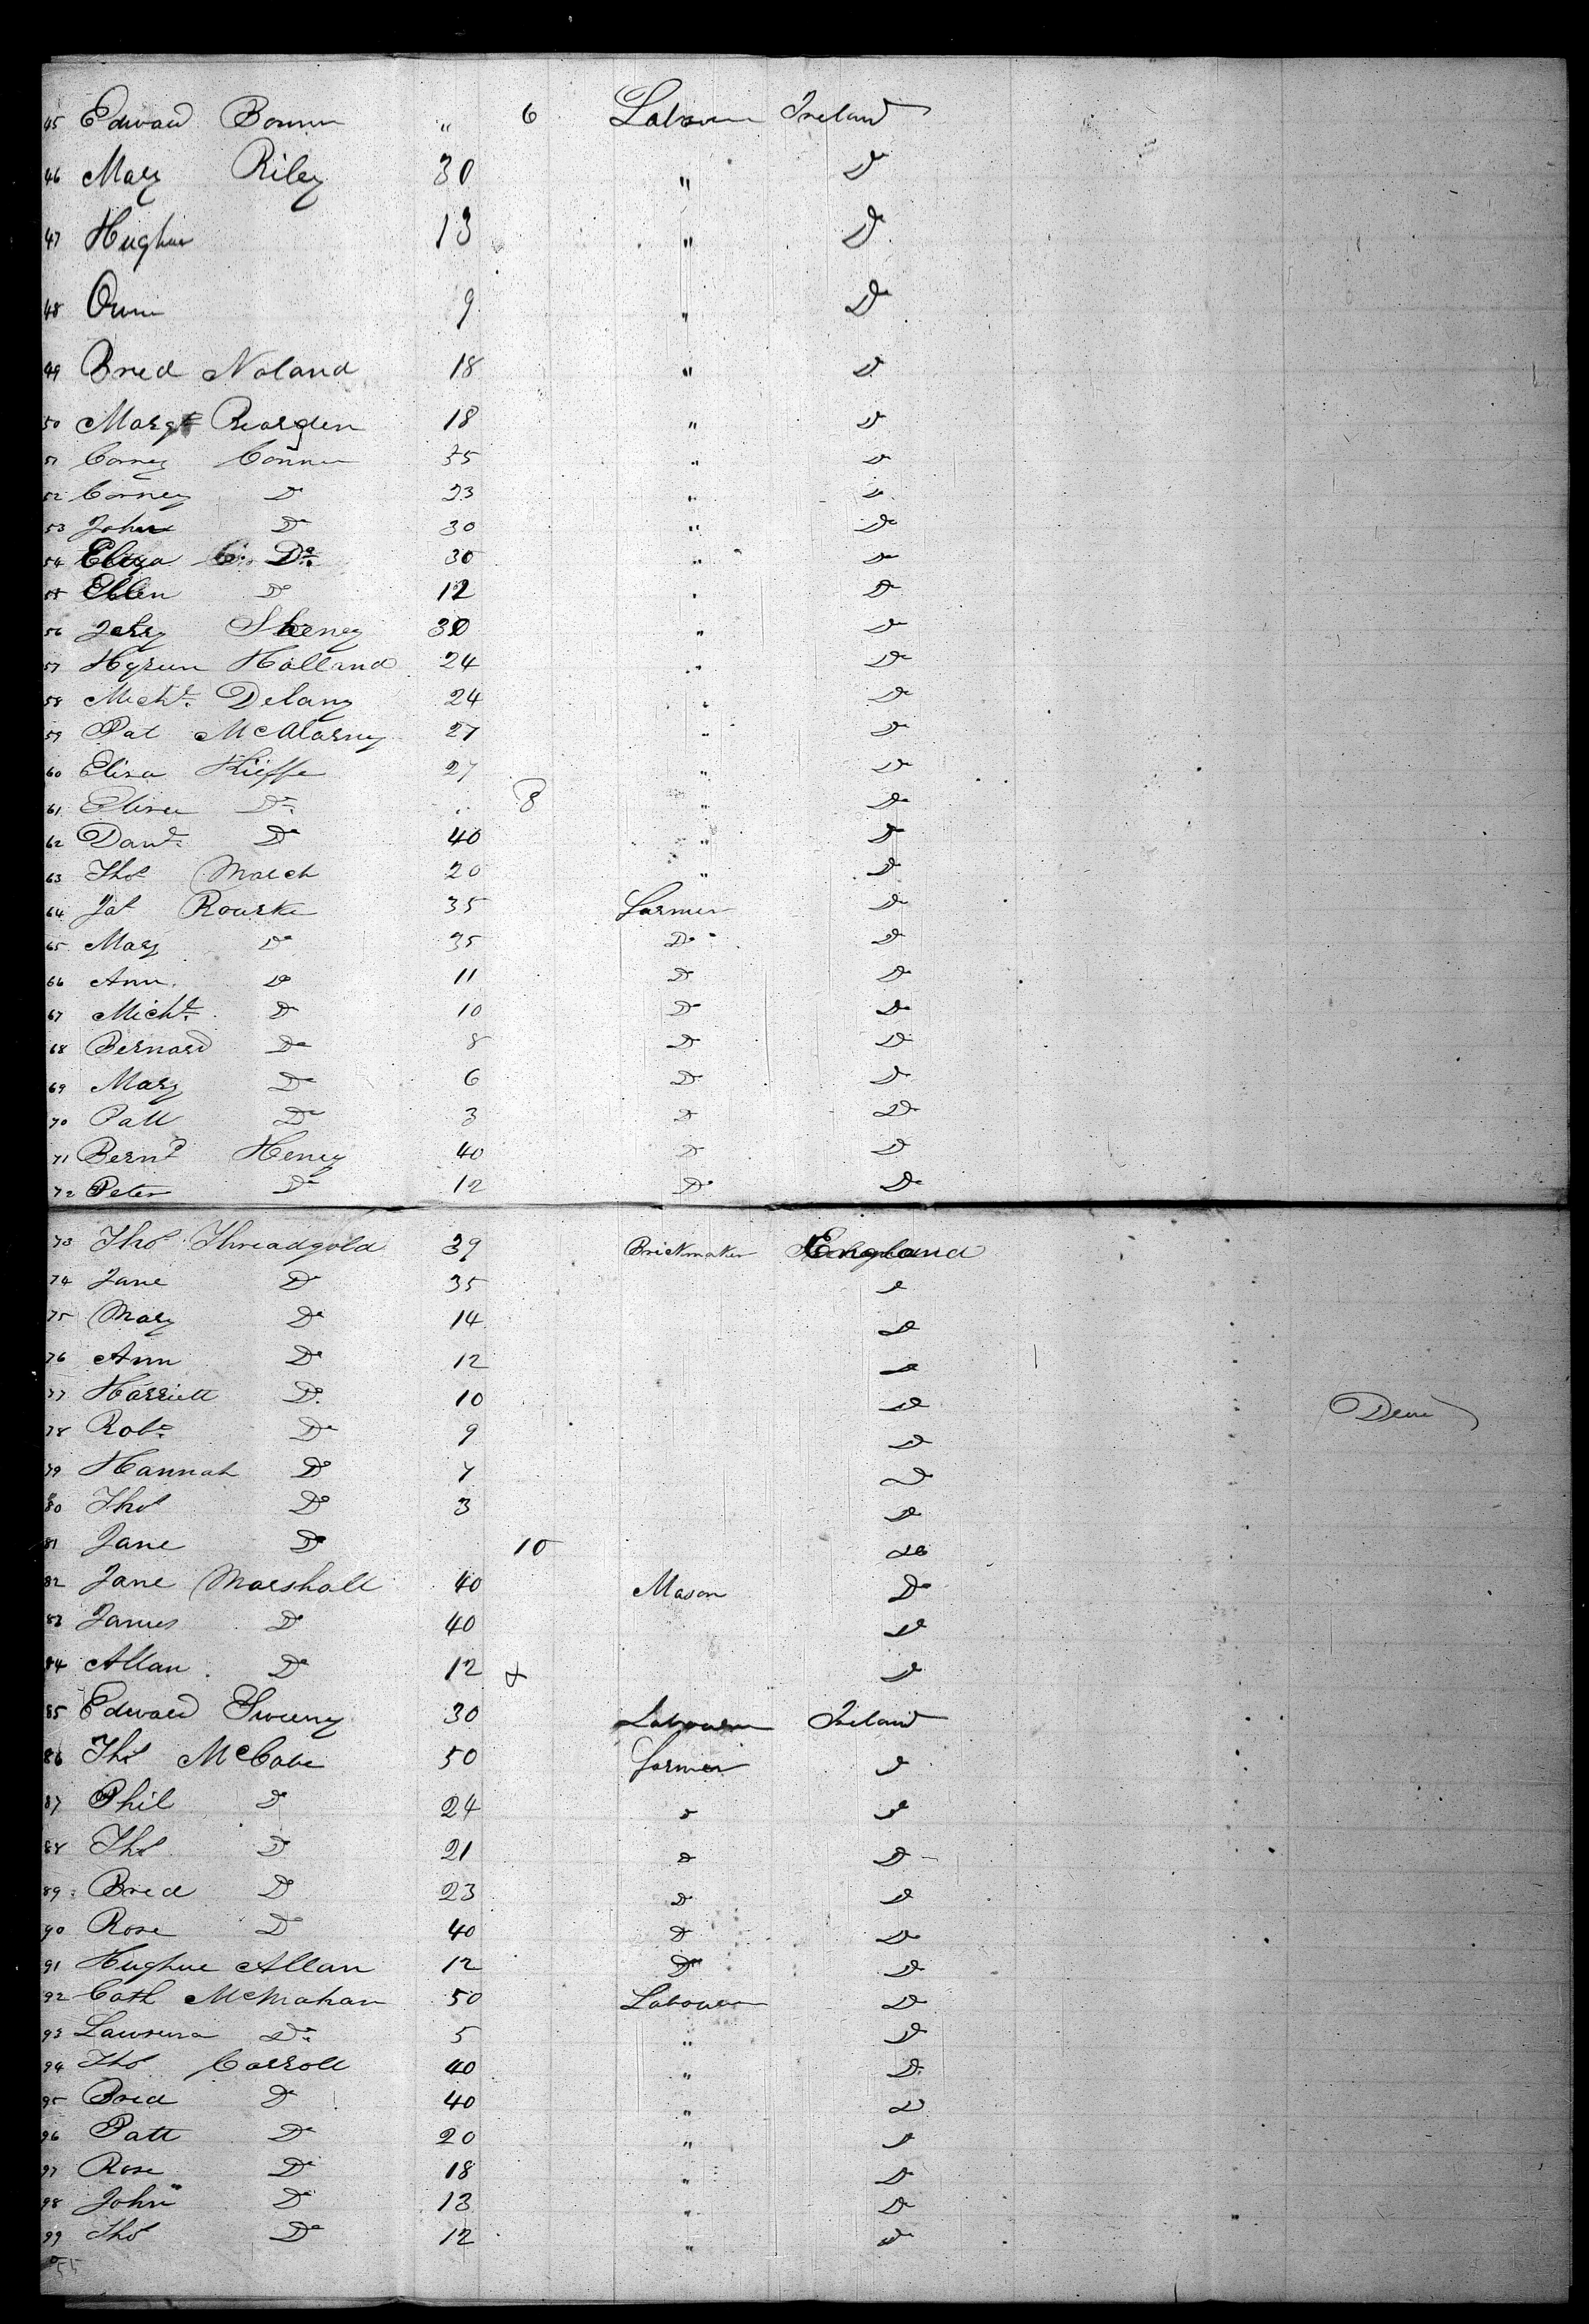 45 Edward Bonnu " 6 Labourer Ireland
46 Mary Riley 30 " Do
47 Hughue 13 " Do
48 Owen 9 " Do
49 Bred Noland 18 " Do
50 Margt Reargden 18 " Do
51 Corney Connor 35 " Do
52 Corney Do 23 " Do
53 John Do 30 " Do
54 Eliza C. Do 30 " Do
55 Ellen Do 12 " Do
56 Jerry Sheney 30 " Do
57 Holland 24 " Do
58 Michl. Delany 24 " Do
59 Pat McAlarney 27 " Do
60 Eliza Kieffe 27 " Do
61 Do " 8 " Do
62 Danl. Do 40 " Do
63 Thos March 20 " Do
64 Rourke 35 farmer Do
65 Mary Do 35 Do Do
66 Ann Do 11 Do Do
67 Michl. Do 10 Do Do
68 Bernard Do 8 Do Do
69 Mary Do 6 Do Do
70 Patt Do 3 Do Do
71 Bernd Heney 40 Do Do
72 Peter Do 12 Do Do
73 Thos Threadgold 39 Brickmaker England
74 Jane Do 35 Do
75 Mary Do 14 Do
76 Ann Do 12 Do
77 Harriett Do 10 Do
78 Robt. Do 9 Do
79 Hannah Do 7 Do
80 Thos Do 3 Do
81 Jane Do 10 Do
82 Jane Marshall 40 Mason Do
83 James Do 40 Do
84 Allan Do 12 + Do
85 Edward Sweeny 30 Labourer Ireland
86 Thos McCabe 50 farmer Do
87 Phil Do 24 Do Do
88 Thos Do 21 Do Do
89 Bred Do 23 Do Do
90 Rose Do 40 Do Do
91 Hughue Allan 12 Do Do
92 Cath McMahan 50 Labourer Do
93 Do 5 " Do
94 Thos Carroll 40 " Do
95 Bred Do 40 " Do
96 Patt Do 20 " Do
97 Rose Do 18 " Do
98 John Do 13 " Do
99 Thos Do 12 " Do
55